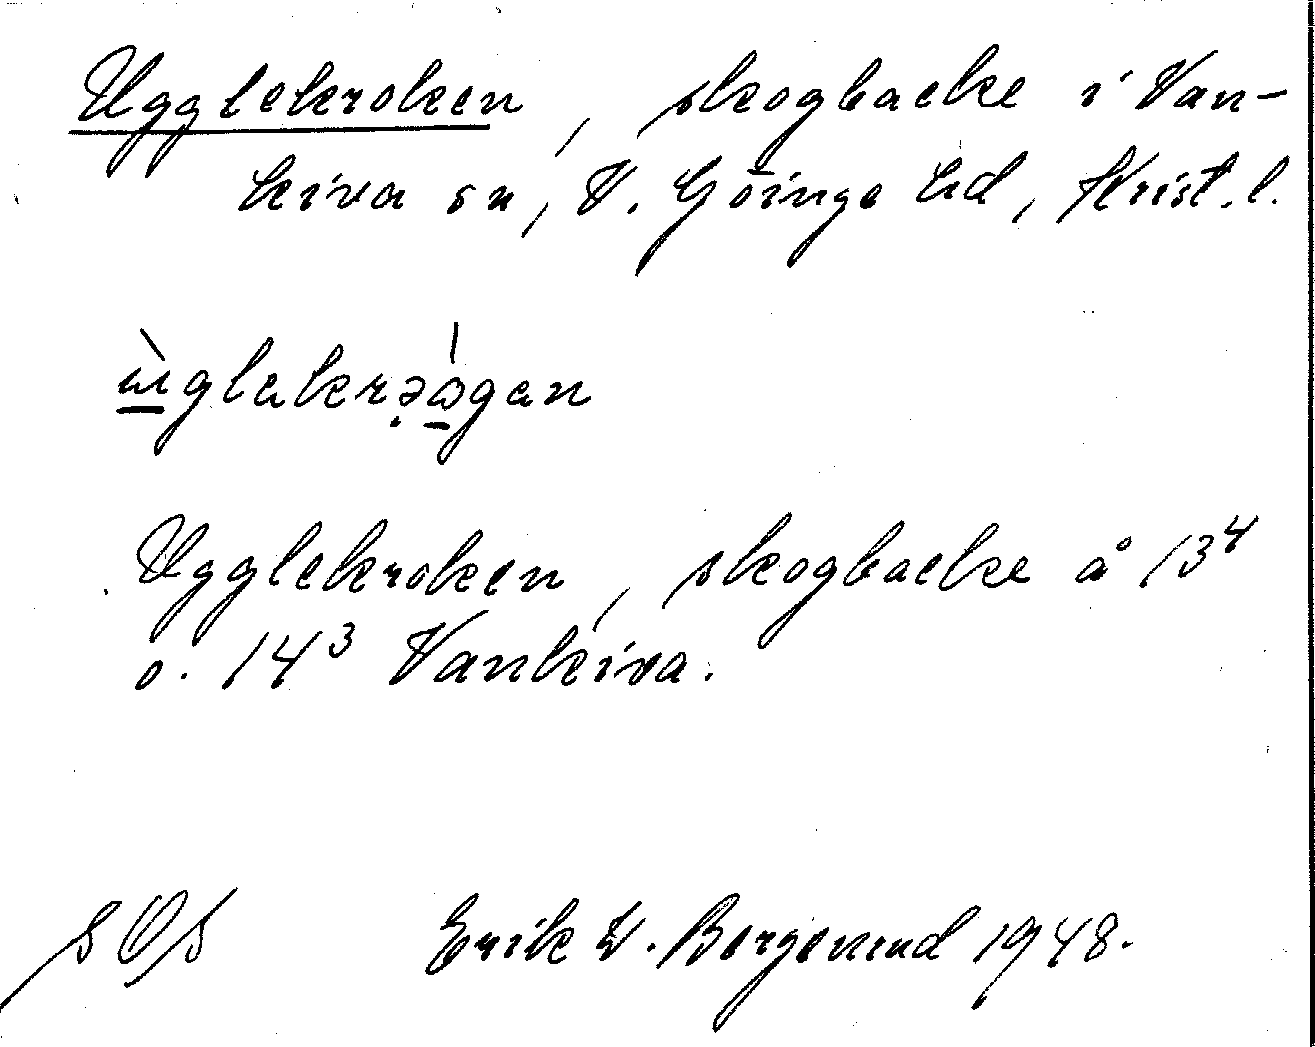 Ugglekroken, skogbacke i Van-
kiva sn, V. Göinge hd, Krist. l.
Ugglekroken, skogbacke å 13⁴
o. 14³ Vankiva.
Erik W. Borgenud 1948.